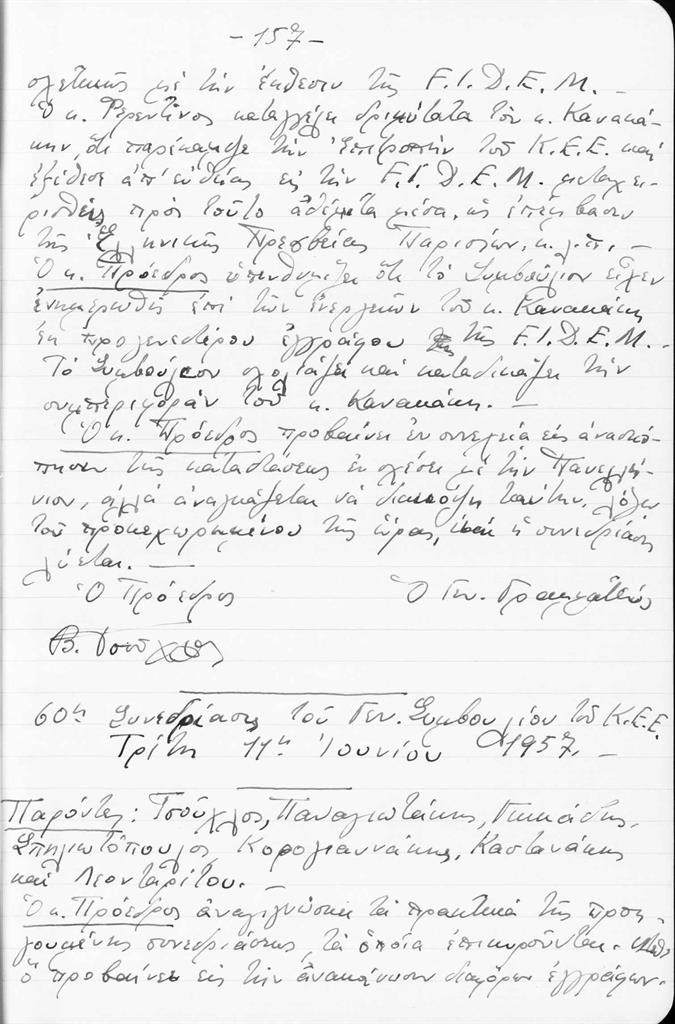 -157-
σχετικῶς μὲ τὴν ἔκθεσιν τῆς F.I.D.E.M. -
Ὁ κ. Φερεντῖνος καταγγέλει δριμύτατα τὸν κ. Κανακά-
κην, ὅτι παρέκαμψε τὴν Ἐπιτροπὴν τοῦ Κ.Ε.Ε. καὶ
ἐξέθεσε ἀπ' εὐθείας εἰς τὴν F.I.D.E.M. μεταχει-
ρισθεὶς πρὸς τοῦτο ἀθέμιτα μέσα, ὡς ἐπέμβασιν
τῆς Ἑλληνικῆς Πρεσβείας Παρισίων, κ.λ.π. -
Ὁ κ. Πρόεδρος ὑπενθυμίζει ὅτι τὸ Συμβούλιον εἶχεν
ἐνημερωθῆ ἐπὶ τῶν ἐνεργειῶν τοῦ κ. Κανακάκη
ἐκ προγενεστέρου ἐγγράφου τῆς F.I.D.E.M. -
Τὸ Συμβούλιον σχολιάζει καὶ καταδικάζει τὴν
συμπεριφορὰν τοῦ κ. Κανακάκη. -
Ὁ κ. Πρόεδρος προβαίνει ἐν συνεχείᾳ εἰς ἀνασκό-
πησιν τῆς καταστάσεως ἐν σχέσει μὲ τὴν Πανελλή-
νιον, ἀλλὰ ἀναγκάζεται νὰ διακόψη ταύτην, λόγῳ
τοῦ προκεχωρημένου τῆς ὥρας, καὶ ἡ συνεδρίασις
λύεται. -
Ὁ Πρόεδρος Ὁ Γεν. Γραμματεύς
Β. Τσοῦχλος
60η Συνεδρίασις τοῦ Γεν. Συμβουλίου τοῦ Κ.Ε.Ε.
Τρίτη 11η Ἰουνίου 1957. -
Παρόντες: Τσοῦχλος, Παναγιωτάκης,
Σπηλιωτόπουλος, Κορογιαννάκης, Καστανάκης
καὶ Λεονταρίτου. -
Ὁ κ. Πρόεδρος ἀναγιγνώσκει τὰ πρακτικὰ τῆς προη-
γουμένης συνεδριάσεως, τὰ ὁποῖα ἐπικυροῦνται. Μεθ'
ὃ προβαίνει εἰς τὴν ἀνακοίνωσιν διαφόρων ἐγγράφων.